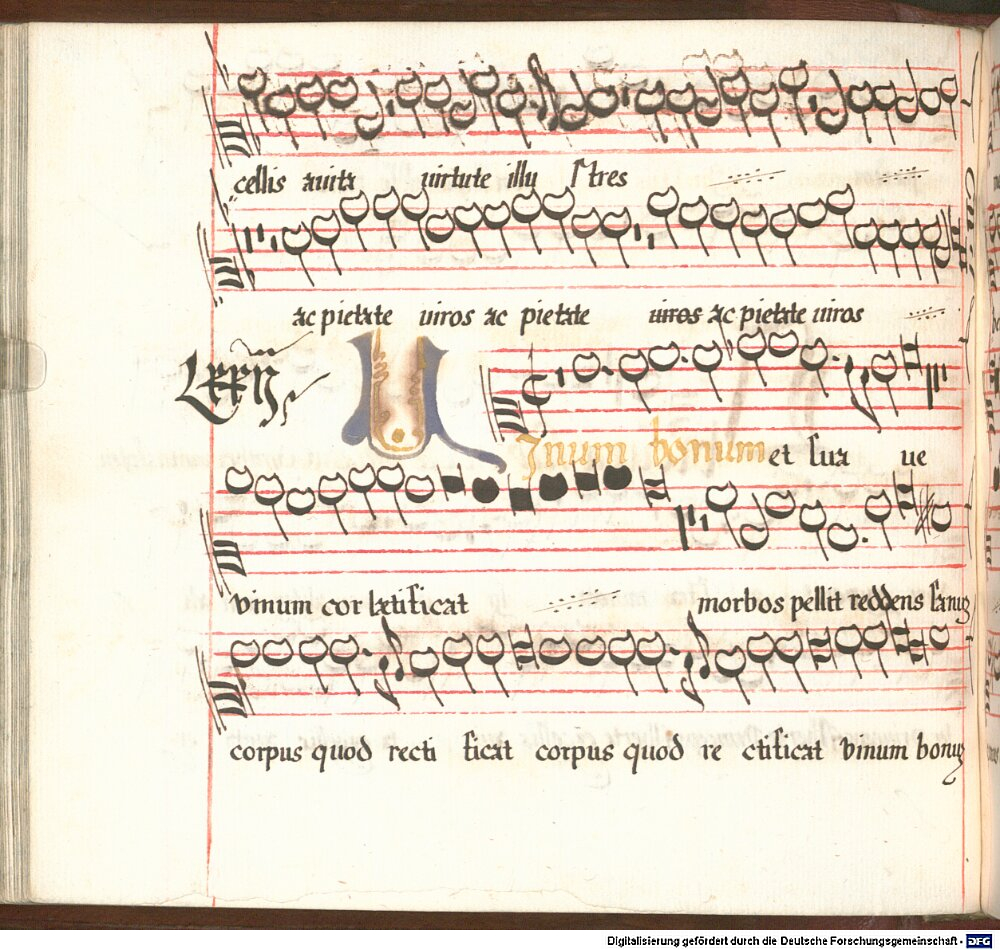 cellis auita uirtute illustres
ac pietate uiros ac pietate uiros ac pietate uiros
Vinum bonum et suaue
vinum cor lætificat morbos pellit reddens sanuz
corpus quod rectificat corpus quod rectificat vinum bonuz
Digitalisierung gefördert durch die Deutsche Forschungsgemeinschaft - DFG